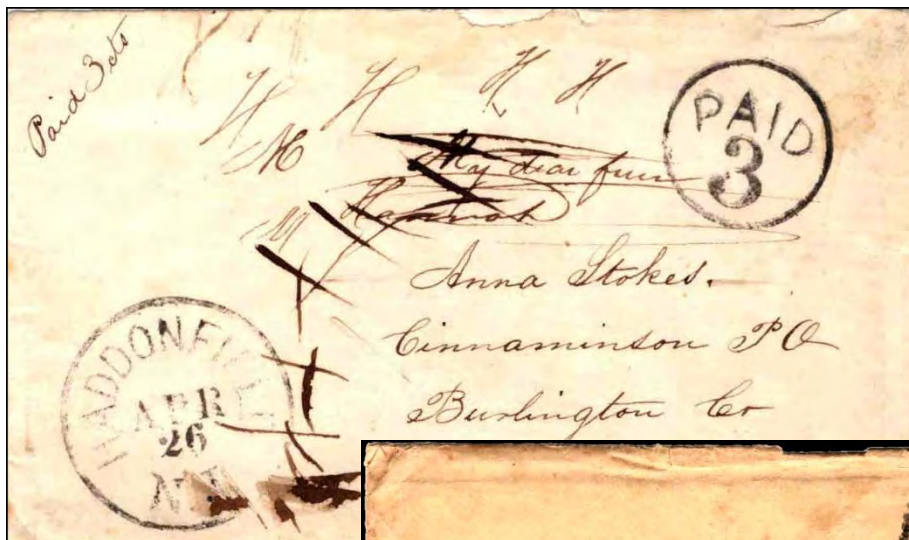 Paid 3 cts
H H H H
PAID
3
M My dear
M Hannah
Anna Stokes.
Cinnaminson PO
Burlington Co
HADDONFIELD
APR
26
N.J.